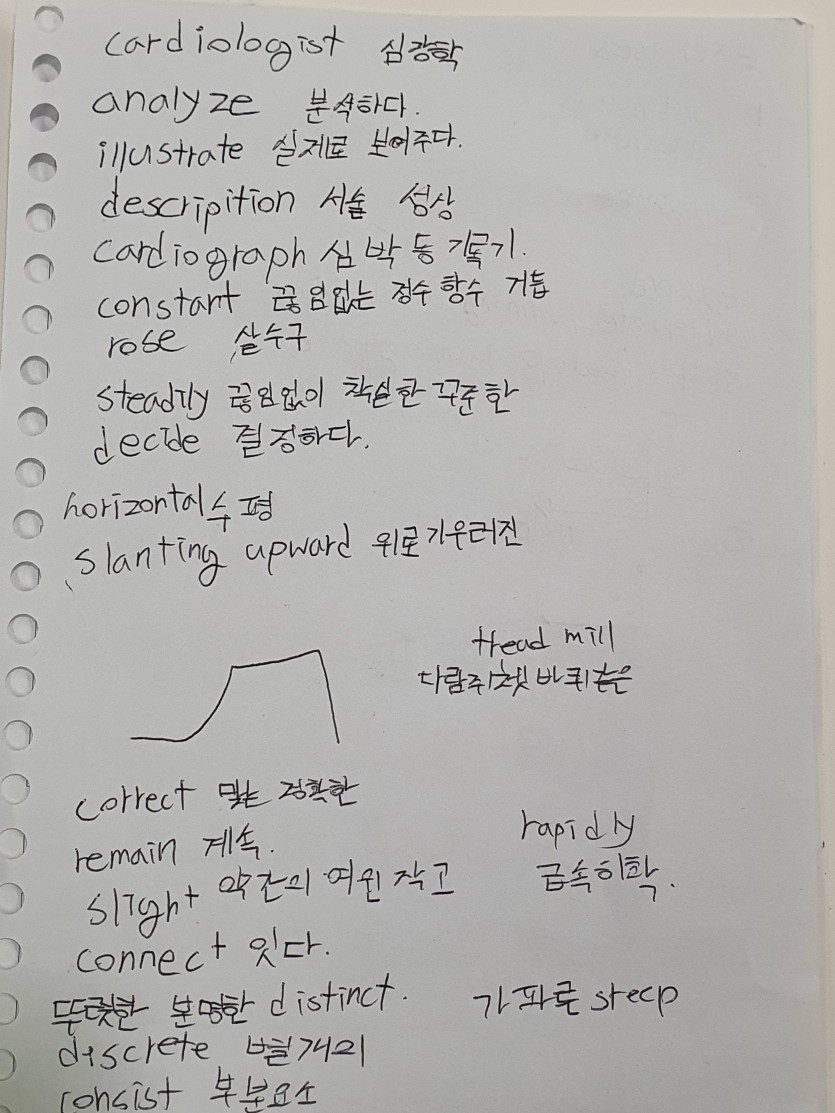 cardiologist 심강학
analyze 분석하다.
illustrate 실제로 보여주다.
descripition 서술 성상
cardiograph 심박동 기록기.
constant 끊임없는 정수 항수 거듭
rose 살수구
steadily 끊임없이 착실한 꾸준한
decide 결정하다.
horizontal 수평
slanting upward 위로기우러진
tread mill
다람쥐쳇바퀴같은
correct 맞는 정확한
remain 계속.
rapidly
급속히확.
slight 약간의 여윈 작고
connect 잇다.
뚜렷한 분명한 distinct.
가파른 steep
discrete 별개의
consist 부분요소